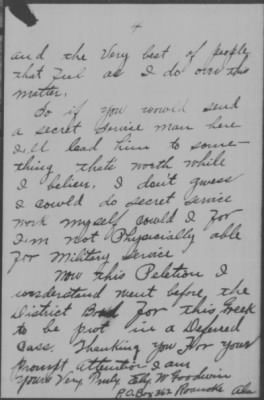 4
and the Very best of people
that Feel as I do over this
matter.
So if you would send
a secret Service man here
I'll lead him to some-
thing thats worth while
I believe. I don't guess
I could do secret service
work myself could I for
I'm not Physicially able
for Military Service
Now this Petetion I
understand went before the
District Bord for this Greek
to be put in a Defered
Cass. Thanking you For your
Prompt Attention I am
Yours Very Truly W Goodwin
P.O. Box 362 Roanoke Ala